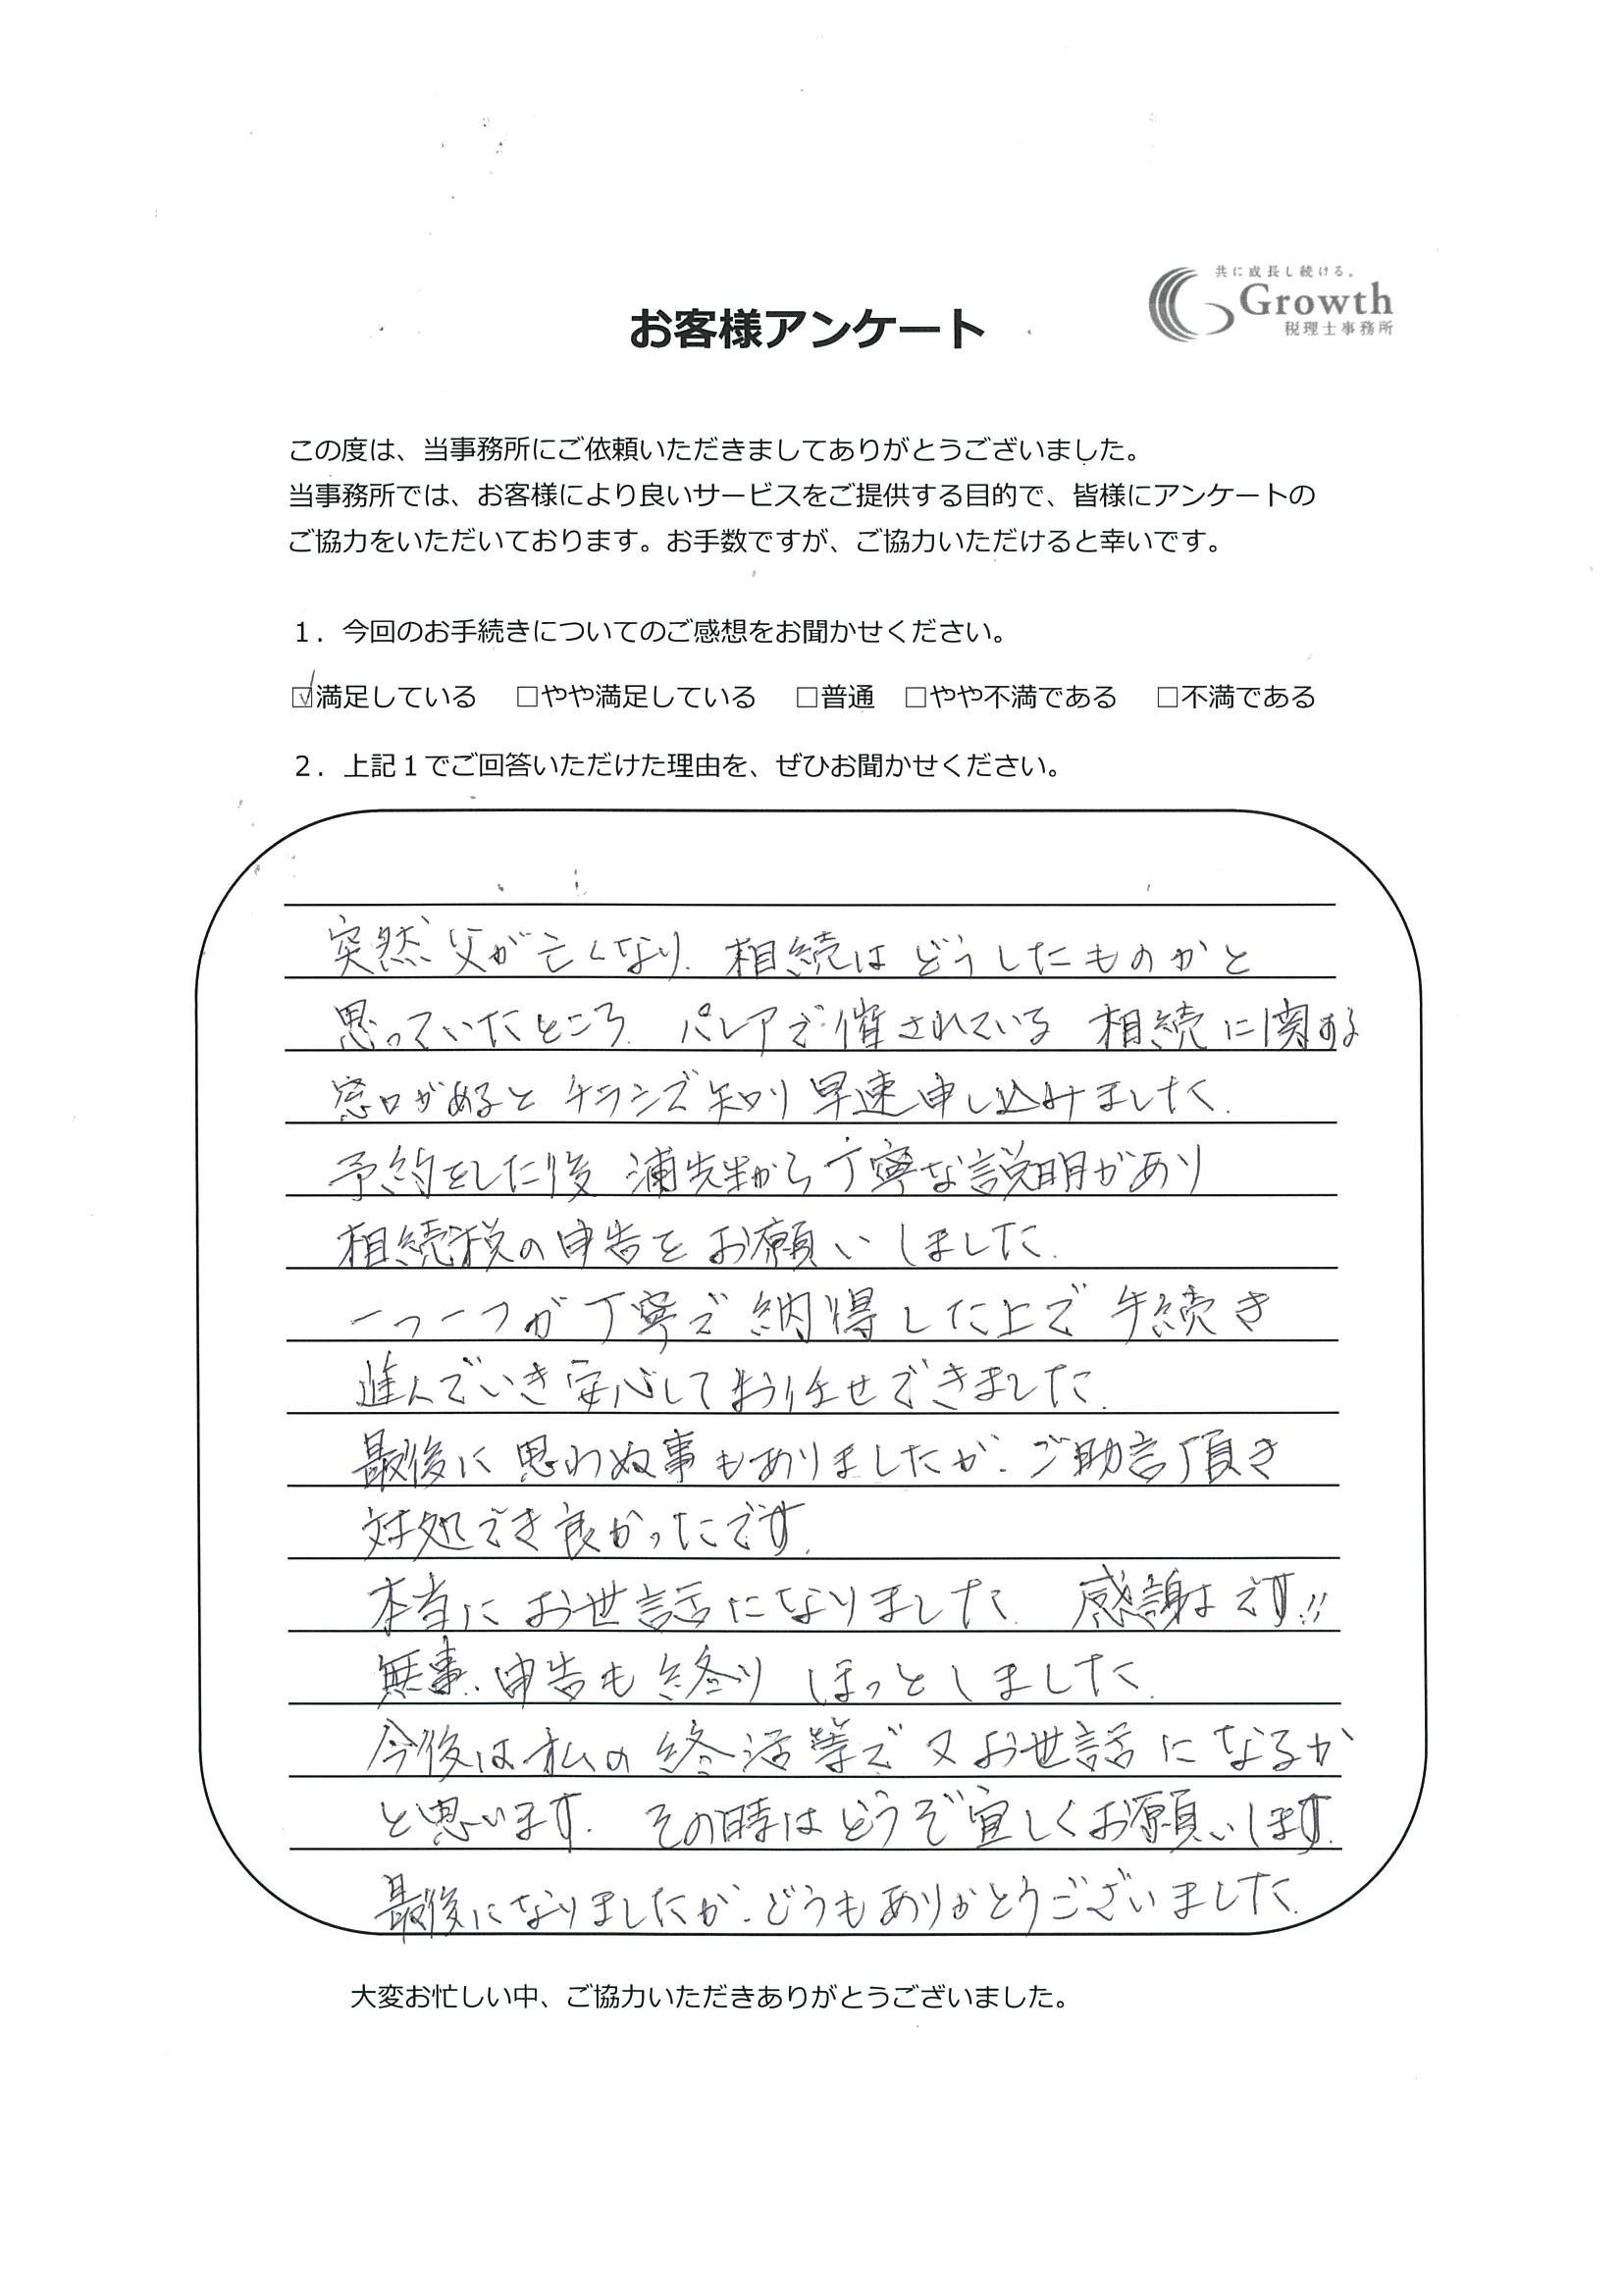 共に成長し続ける。
Growth
税理士事務所
お客様アンケート
この度は、当事務所にご依頼いただきましてありがとうございました。
当事務所では、お客様により良いサービスをご提供する目的で、皆様にアンケートの
ご協力をいただいております。お手数ですが、ご協力いただけると幸いです。
１．今回のお手続きについてのご感想をお聞かせください。
☑満足している □やや満足している □普通 □やや不満である □不満である
２．上記１でご回答いただけた理由を、ぜひお聞かせください。
突然父が亡くなり、相続はどうしたものかと
思っていたところ、パレアで催されている 相続に関する
窓口があるとチラシで知り早速申し込みました。
予約をした後 浦先生から丁寧な説明があり
相続税の申告をお願いしました。
一つ一つが丁寧で納得した上で手続き
進んでいき安心してお任せできました。
最後に思わぬ事もありましたが、ご助言頂き
対処でき良かったです。
本当にお世話になりました。感謝です!!
無事、申告も終り ほっとしました。
今後は私の終活等で又お世話になるか
と思います。その時はどうぞ宜しくお願いします。
最後になりましたが、どうもありがとうございました。
大変お忙しい中、ご協力いただきありがとうございました。